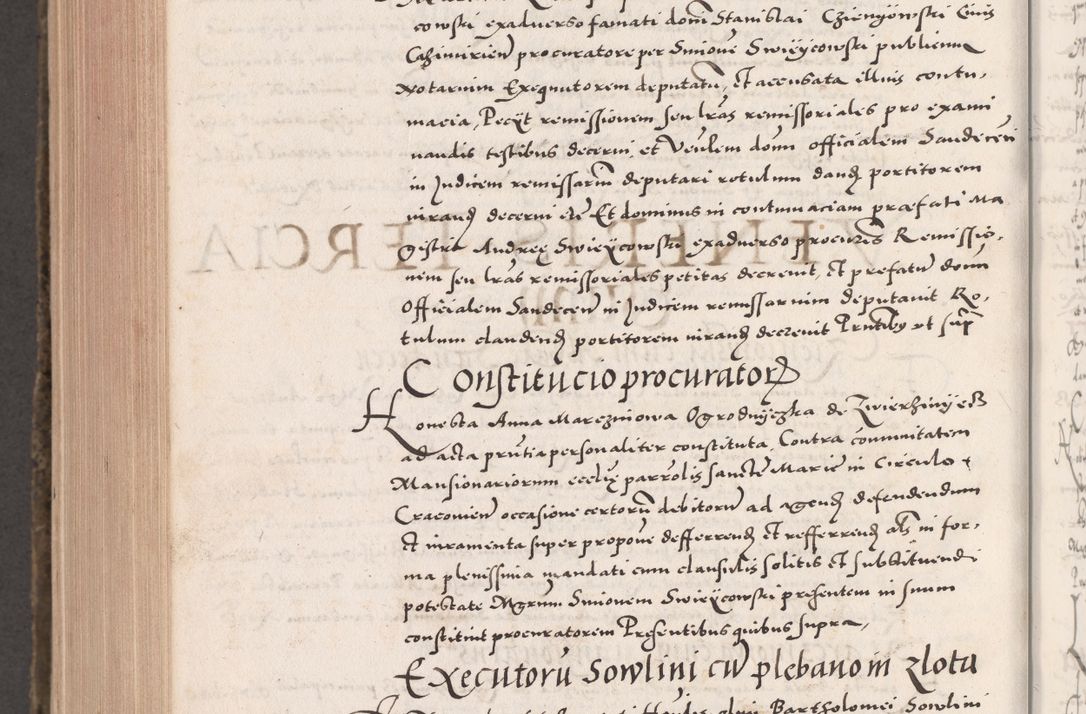 cowski exadverso famati domi Stanislai Czienyowski Civis
Cazimirien procuratore per Simone Swieÿcowski publicum
Notarium Exequutorem deputatu, Et accusata illius contu,
macia, Pecÿt remissionem seu lras remissoriales pro exami
nandis testibus decerni, et Venlem domi officialem Sandecen
in Judicem remissarm deputari rotulum dand portitorem
iurand decerni etc Et dominus in contumaciam præfati Ma
gistri Andreę Swieÿcowski exadverso procuris Remissio,
nem seu lras remissoriales petitas decrevit, Et prefatu domi
Officialem Sandecen in Judicem remissarium deputavit Ro,
tulum claudend portitorem iurand decrevit Prntibo ut supr
Constitucio procurator
Honesta Anna Marczinowa Ogrodnÿczka de Zwierzinÿecz
ad acta prntia personaliter constituta Contra comunitatem
Mansionariorum ecclie parrolis Sancte Marie in Circulo
Cracovien occasione certoru debitoru ad agend defendendum
Et iuramenta super propone defferrend Et refferrend als in for,
ma plenissima mandati cum clausulis solitis Et substituendi
potestate Mgrum Simonem Swieÿcowski presentem in suum
constituit procuratorem Presentibus quibus supra,
Executoru Sowlini cu plebano in Zlota
Bartholomei Sowlini
VENERIS TERCIA